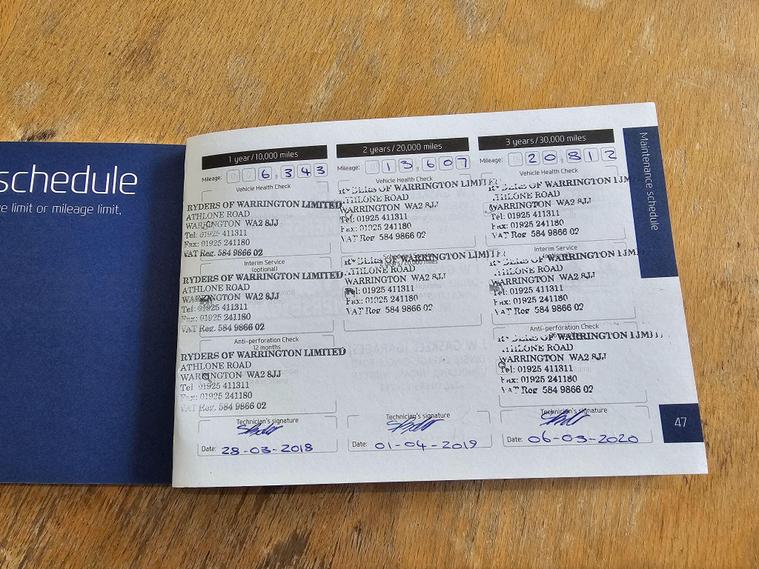 schedule
e limit or mileage limit,
1 year/10,000 miles
Mileage: 6,343
Vehicle Health Check
RYDERS OF WARRINGTON LIMITED
ATHLONE ROAD
WARRINGTON WA2 8JJ
Tel: 01925 411311
Fax: 01925 241180
VAT Reg. 584 9866 02
Interim Service
(optional)
RYDERS OF WARRINGTON LIMITED
ATHLONE ROAD
WARRINGTON WA2 8JJ
Tel: 01925 411311
Fax: 01925 241180
VAT Reg. 584 9866 02
Anti-perforation Check
12 months
RYDERS OF WARRINGTON LIMITED
ATHLONE ROAD
WARRINGTON WA2 8JJ
Tel: 01925 411311
Fax: 01925 241180
VAT Reg. 584 9866 02
Technician's signature
Date: 28-03-2018
2 years/20,000 miles
Mileage: 13,607
Vehicle Health Check
RYDERS OF WARRINGTON LIMITED
ATHLONE ROAD
WARRINGTON WA2 8JJ
Tel: 01925 411311
Fax: 01925 241180
VAT Reg. 584 9866 02
RYDERS OF WARRINGTON LIMITED
ATHLONE ROAD
WARRINGTON WA2 8JJ
Tel: 01925 411311
Fax: 01925 241180
VAT Reg. 584 9866 02
Technician's signature
Date: 01-04-2019
3 years/30,000 miles
Mileage: 20,812
Vehicle Health Check
RYDERS OF WARRINGTON LIM
ATHLONE ROAD
WARRINGTON WA2 8JJ
Tel: 01925 411311
Fax: 01925 241180
VAT Reg. 584 9866 02
Interim Service
RYDERS OF WARRINGTON LIM
ATHLONE ROAD
WARRINGTON WA2 8JJ
Tel: 01925 411311
Fax: 01925 241180
VAT Reg. 584 9866 02
Anti-perforation Check
RYDERS OF WARRINGTON LIMIT
ATHLONE ROAD
WARRINGTON WA2 8JJ
Tel: 01925 411311
Fax: 01925 241180
VAT Reg. 584 9866 02
Technician's signature
Date: 06-03-2020
Maintenance schedule
47